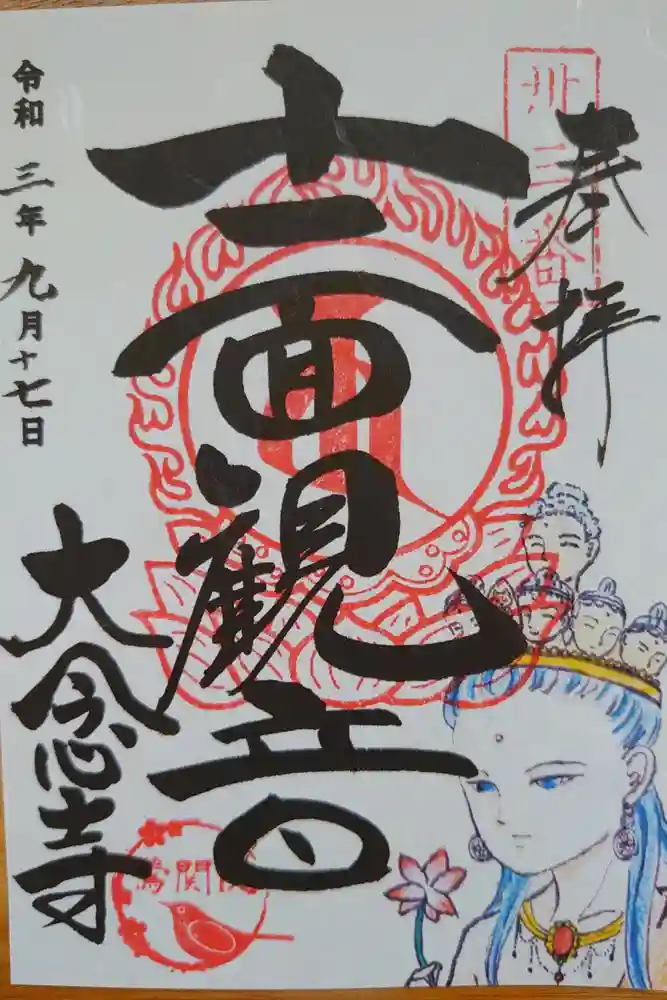 奉拝
卅三番
十一面観音
令和三年九月十七日
大念寺